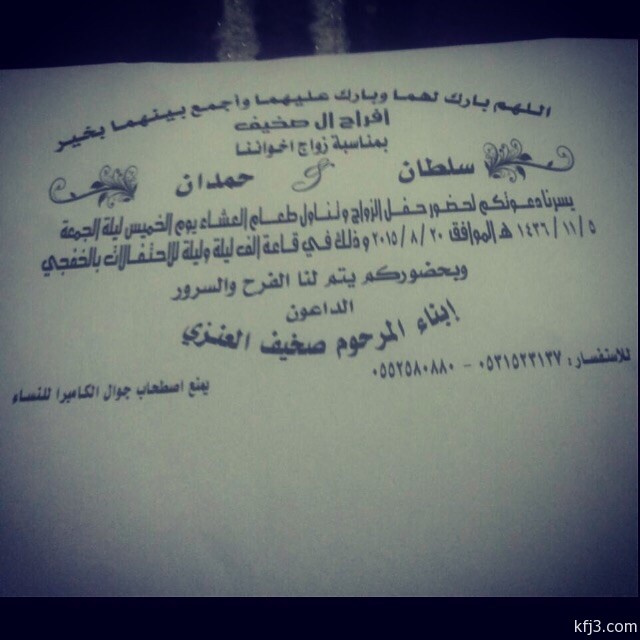 اللهم بارك لهما وبارك عليهما واجمع بينهما بخير
افراح ال صخيف
بمناسبة زواج اخواننا
سلطان & حمدان
يسرنا دعوتكم لحضور حفل الزواج وتناول طعام العشاء يوم الخميس ليلة الجمعة
١٤٣٦/١١/٥ هـ الموافق ٢٠١٥/٨/٢٠ وذلك في قاعة الف ليلة وليلة للاحتفالات بالخفجي
وبحضوركم يتم لنا الفرح والسرور
الداعون
إبناء المرحوم صخيف العنزي
للاستفسار : ٠٥٣١٥٢٣١٣٧ - ٠٥٥٢٥٨٠٨٨٠
يمنع اصطحاب جوال الكاميرا للنساء
kfj3.com